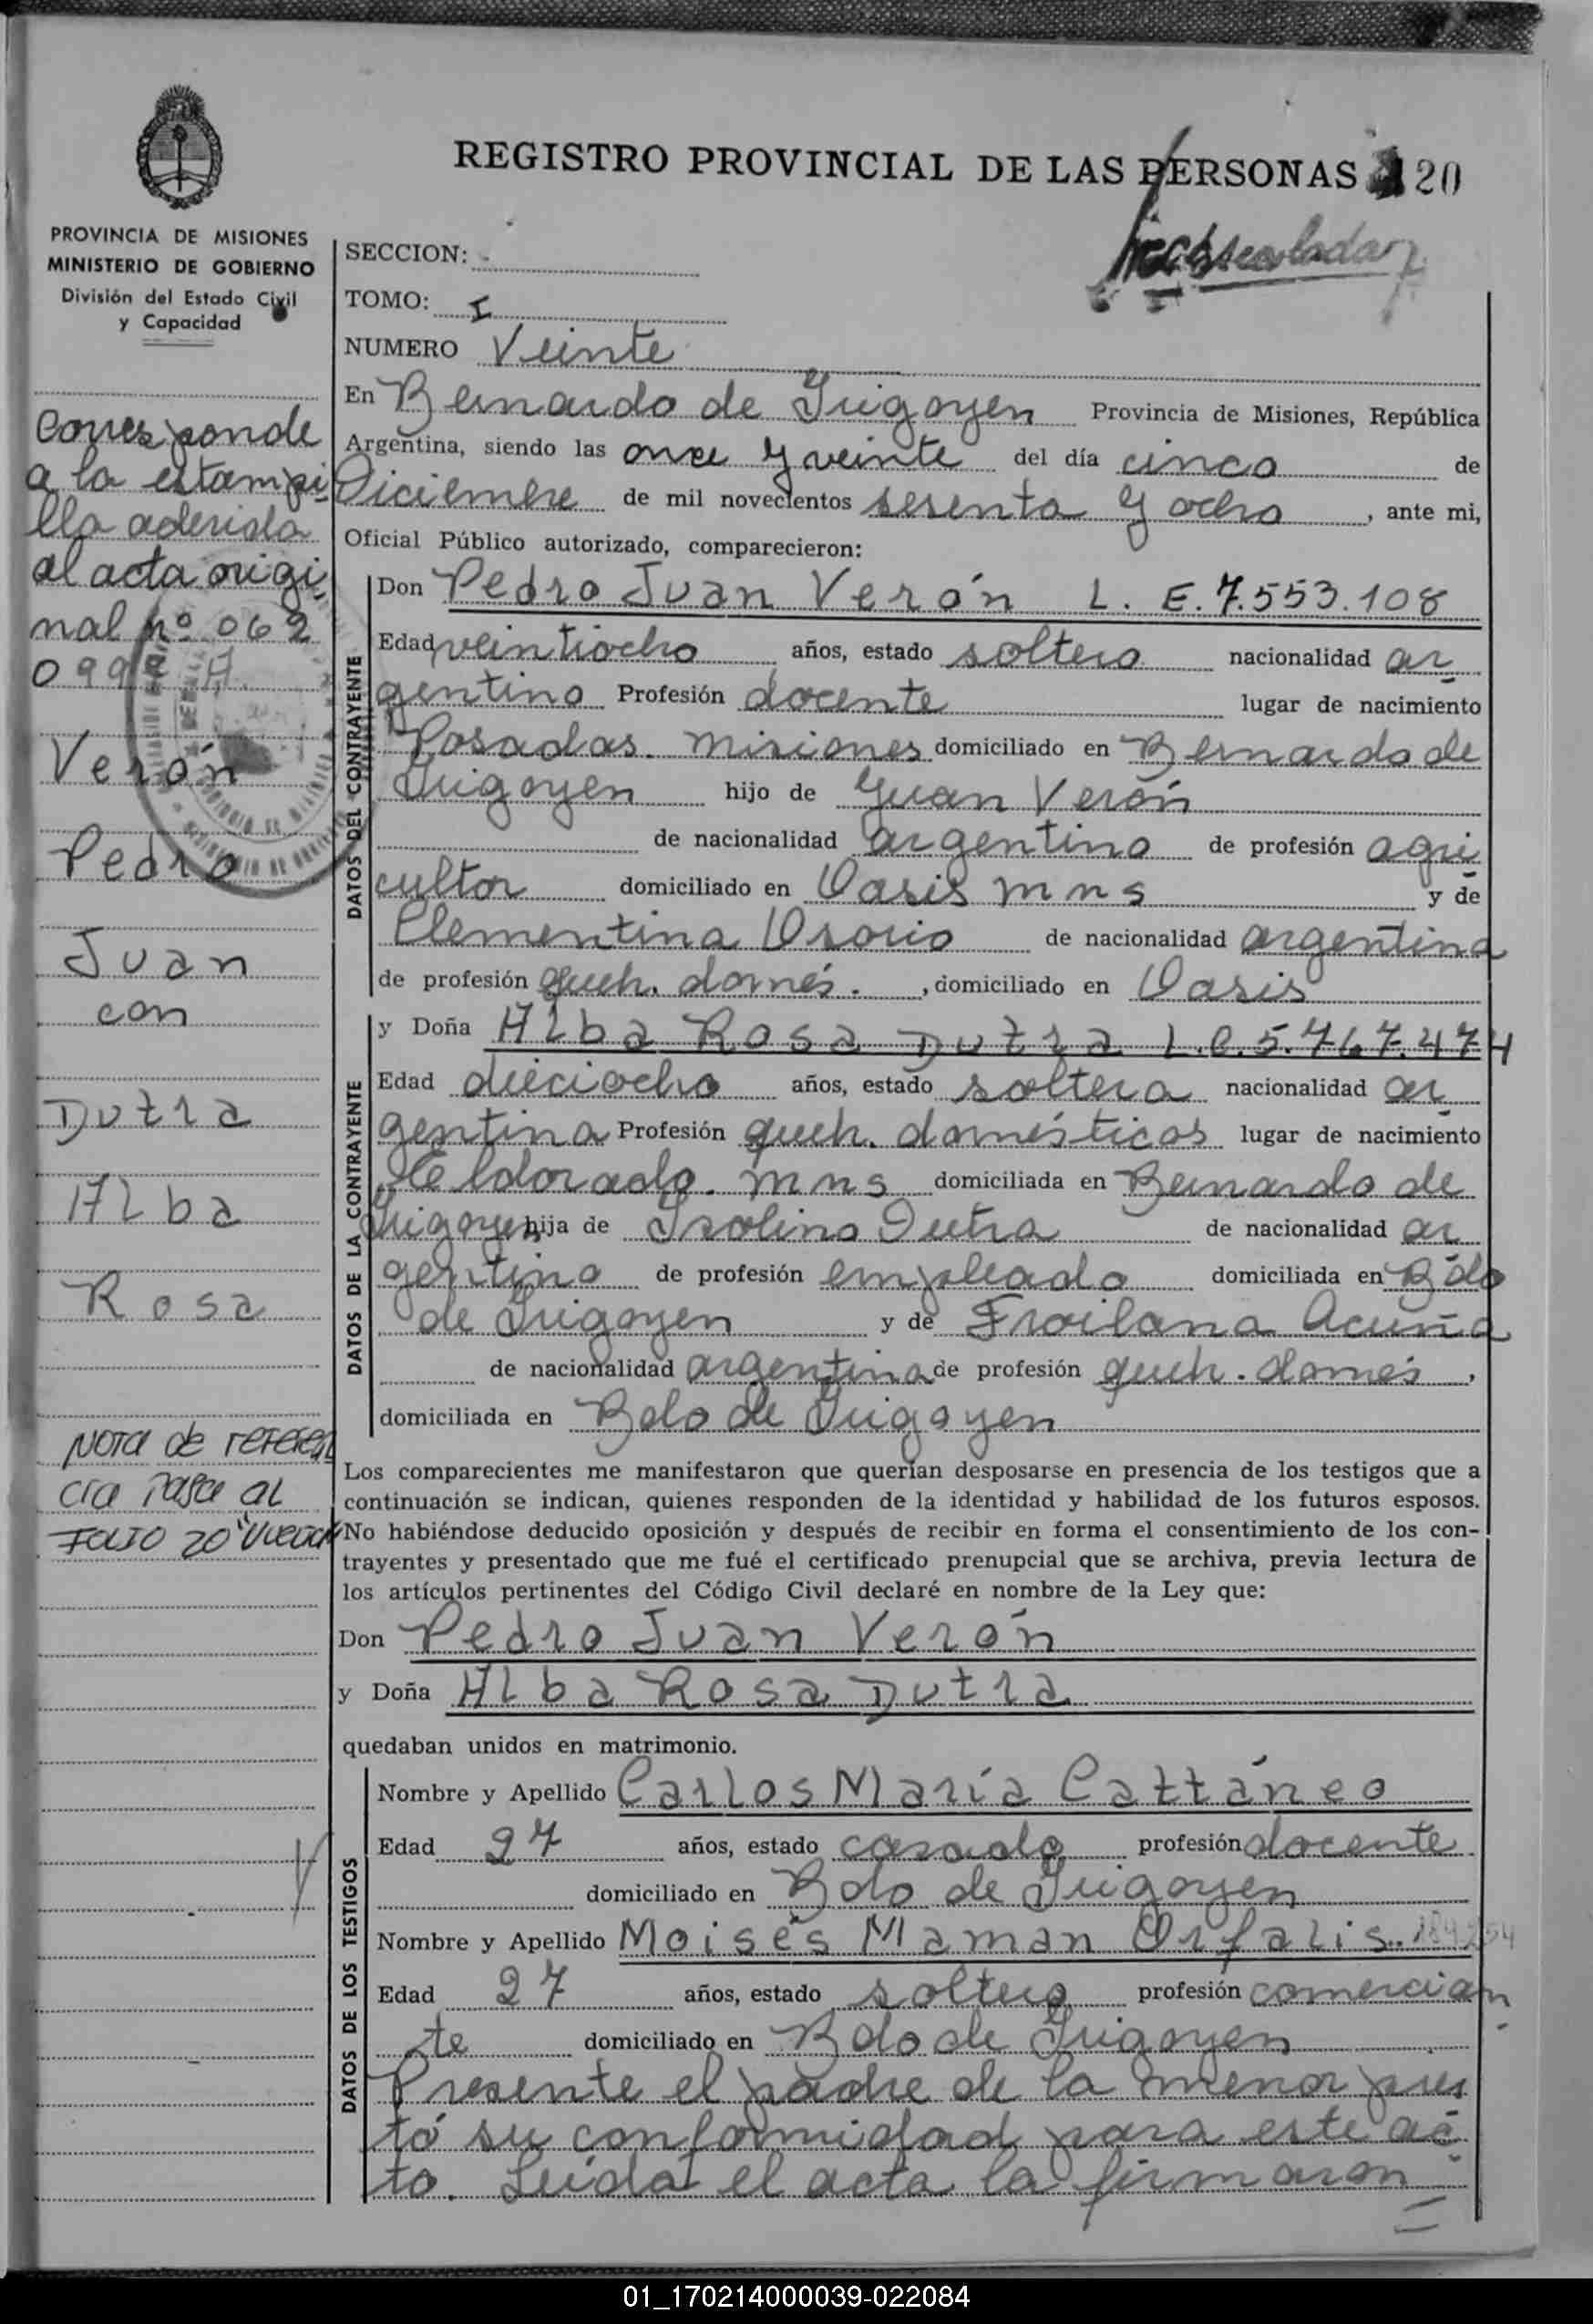 REGISTRO PROVINCIAL DE LAS PERSONAS 20
PROVINCIA DE MISIONES
MINISTERIO DE GOBIERNO
División del Estado Civil
y Capacidad
Corresponde
a la estampi
lla aderida
al acta origi
nal nº 062
099
Verón
Pedro
Juan
con
Dutra
Alba
Rosa
Nota de referen
cia Pasa al
FOLIO 20 "Vuelta"
SECCION: -
TOMO: I
NUMERO Veinte
En Bernardo de Irigoyen Provincia de Misiones, República
Argentina, siendo las once y veinte del día cinco de
Diciembre de mil novecientos sesenta y ocho, ante mi,
Oficial Público autorizado, comparecieron:
DATOS DEL CONTRAYENTE
Don Pedro Juan Verón L. E. 7.553.108
Edad veintiocho años, estado soltero nacionalidad ar
gentino Profesión docente lugar de nacimiento
Posadas. Misiones domiciliado en Bernardo de
Irigoyen hijo de Juan Verón
de nacionalidad argentino de profesión agri
cultor domiciliado en Oasis mns y de
Clementina Osorio de nacionalidad argentina
de profesión queh. domés. , domiciliado en Oasis
DATOS DE LA CONTRAYENTE
y Doña Alba Rosa Dutra L.C. 5.767.474
Edad dieciocho años, estado soltera nacionalidad ar
gentina Profesión queh. domésticos lugar de nacimiento
Eldorado. mns domiciliada en Bernardo de
Irigoyen hija de Isolino Dutra de nacionalidad ar
gentino de profesión empleado domiciliada en Bdo
de Irigoyen y de Froilana Acuña
de nacionalidad argentina de profesión queh. domés ,
domiciliada en Bdo de Irigoyen
Los comparecientes me manifestaron que querían desposarse en presencia de los testigos que a
continuación se indican, quienes responden de la identidad y habilidad de los futuros esposos.
No habiéndose deducido oposición y después de recibir en forma el consentimiento de los con-
trayentes y presentado que me fué el certificado prenupcial que se archiva, previa lectura de
los artículos pertinentes del Código Civil declaré en nombre de la Ley que:
Don Pedro Juan Verón
y Doña Alba Rosa Dutra
quedaban unidos en matrimonio.
DATOS DE LOS TESTIGOS
Nombre y Apellido Carlos María Cattáneo
Edad 27 años, estado casado profesión docente
domiciliado en Bdo de Irigoyen
Nombre y Apellido Moisés Maman Orfalis
Edad 27 años, estado soltero profesión comercian
te domiciliado en Bdo de Irigoyen
Presente el padre de la menor pres
tó su conformidad para este ac
to. Leída el acta la firmaron
01_170214000039-022084